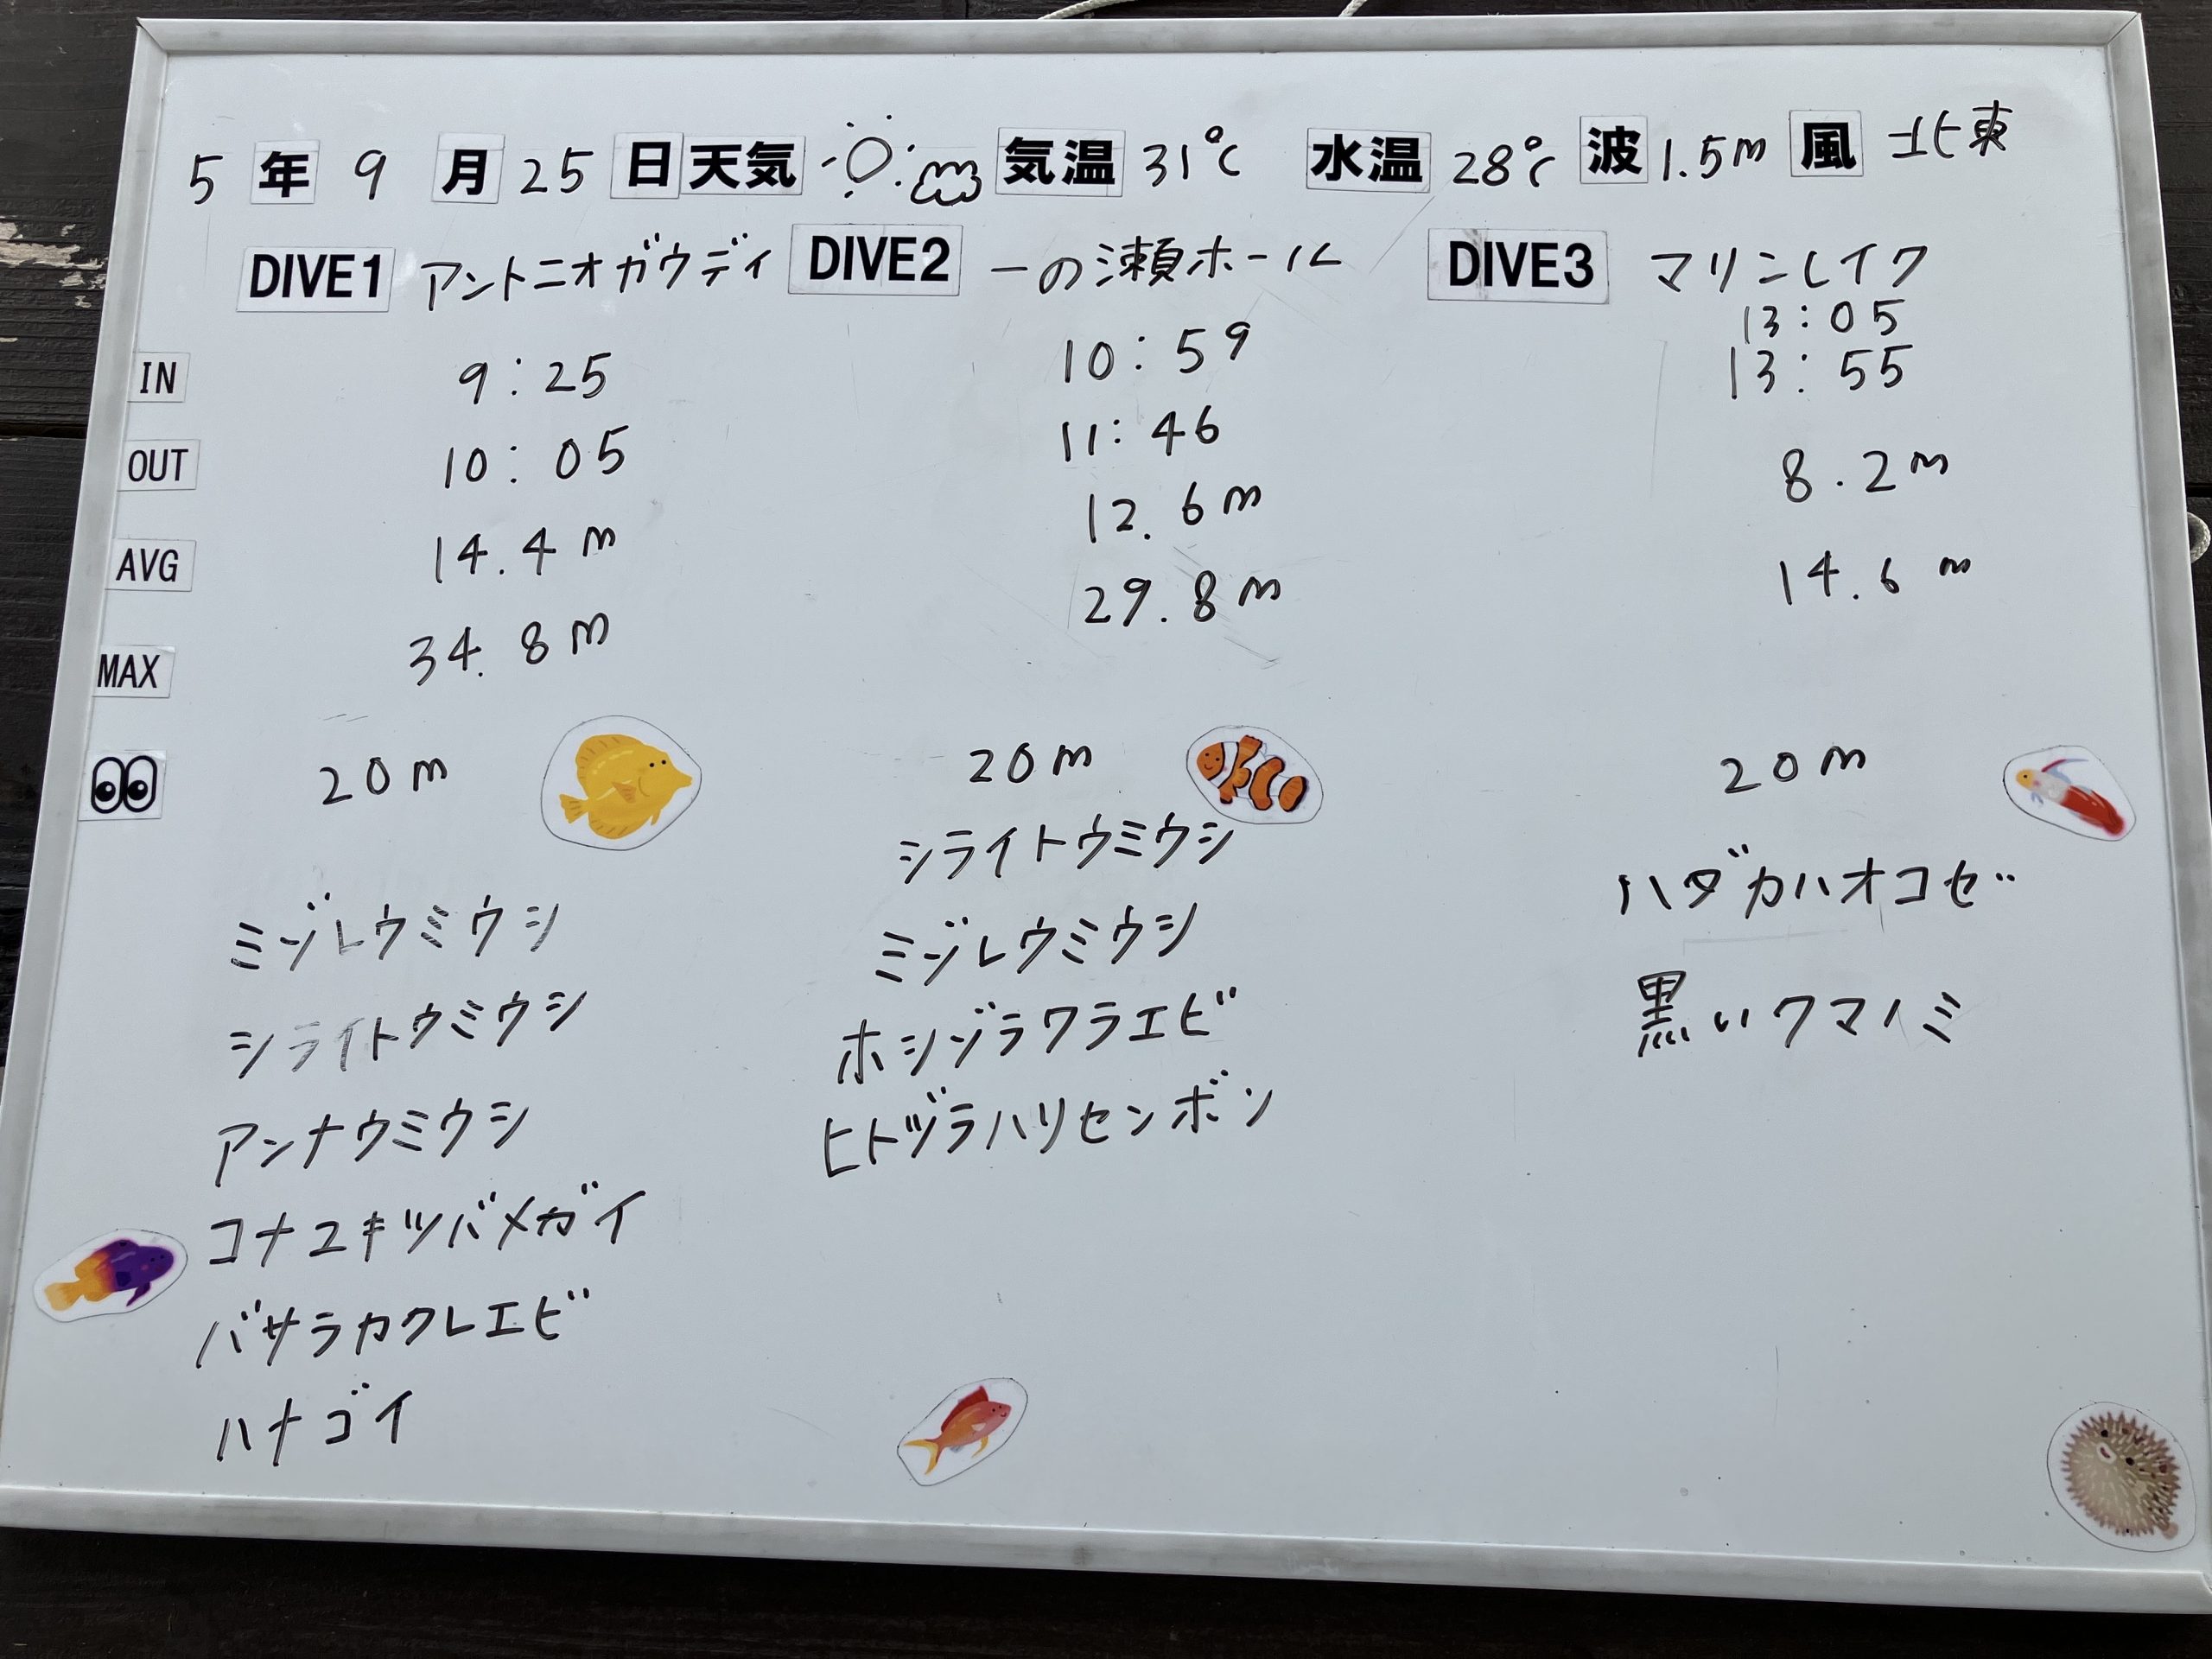 5 年 9 月 25 日 天気 気温 31℃ 水温 28℃ 波 1.5m 風 北東
DIVE1 アントニオガウディ DIVE2 一の瀬ホール DIVE3 マリンレイク
IN 9:25 10:59 13:05
OUT 10:05 11:46 13:55
AVG 14.4m 12.6m 8.2m
MAX 34.8m 29.8m 14.6m
20m 20m 20m
ミゾレウミウシ
シライトウミウシ
アンナウミウシ
コナユキツバメガイ
バサラカクレエビ
ハナゴイ
シライトウミウシ
ミゾレウミウシ
ホシゾラワラエビ
ヒトヅラハリセンボン
ハダカハオコゼ
黒いクマノミ